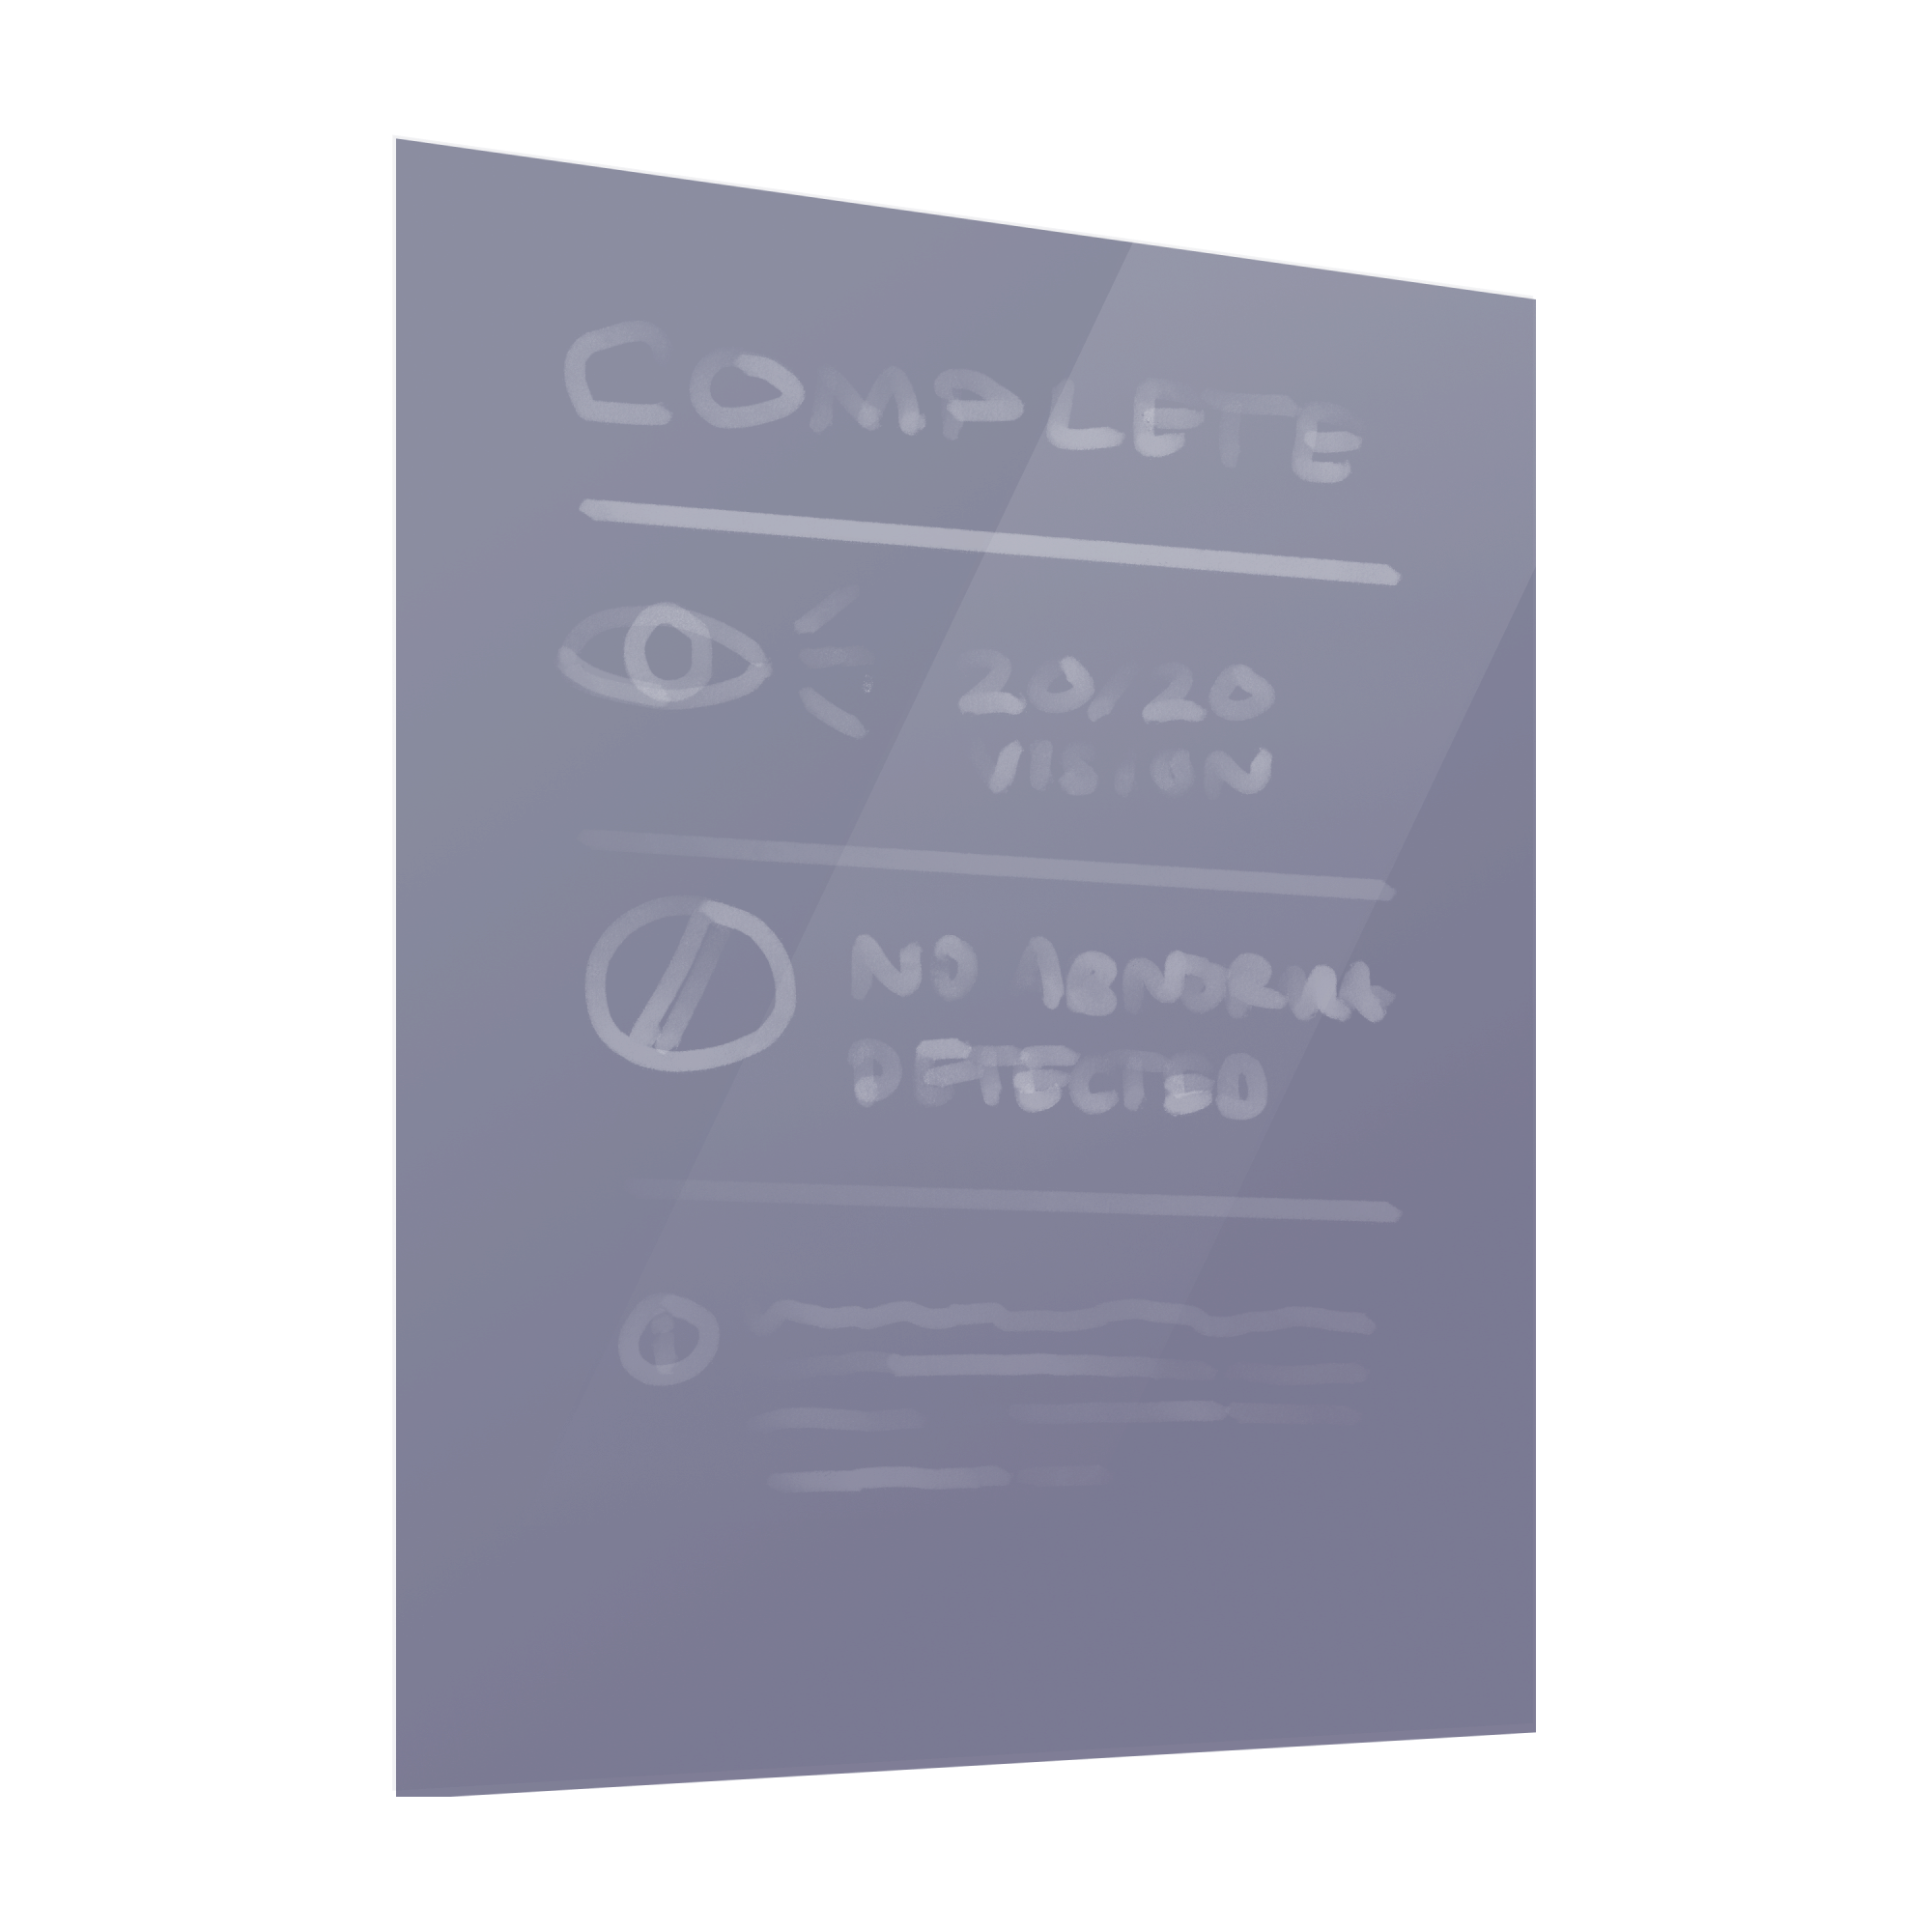 COMPLETE
20/20
VISION
NO ABNORMAL
DETECTED